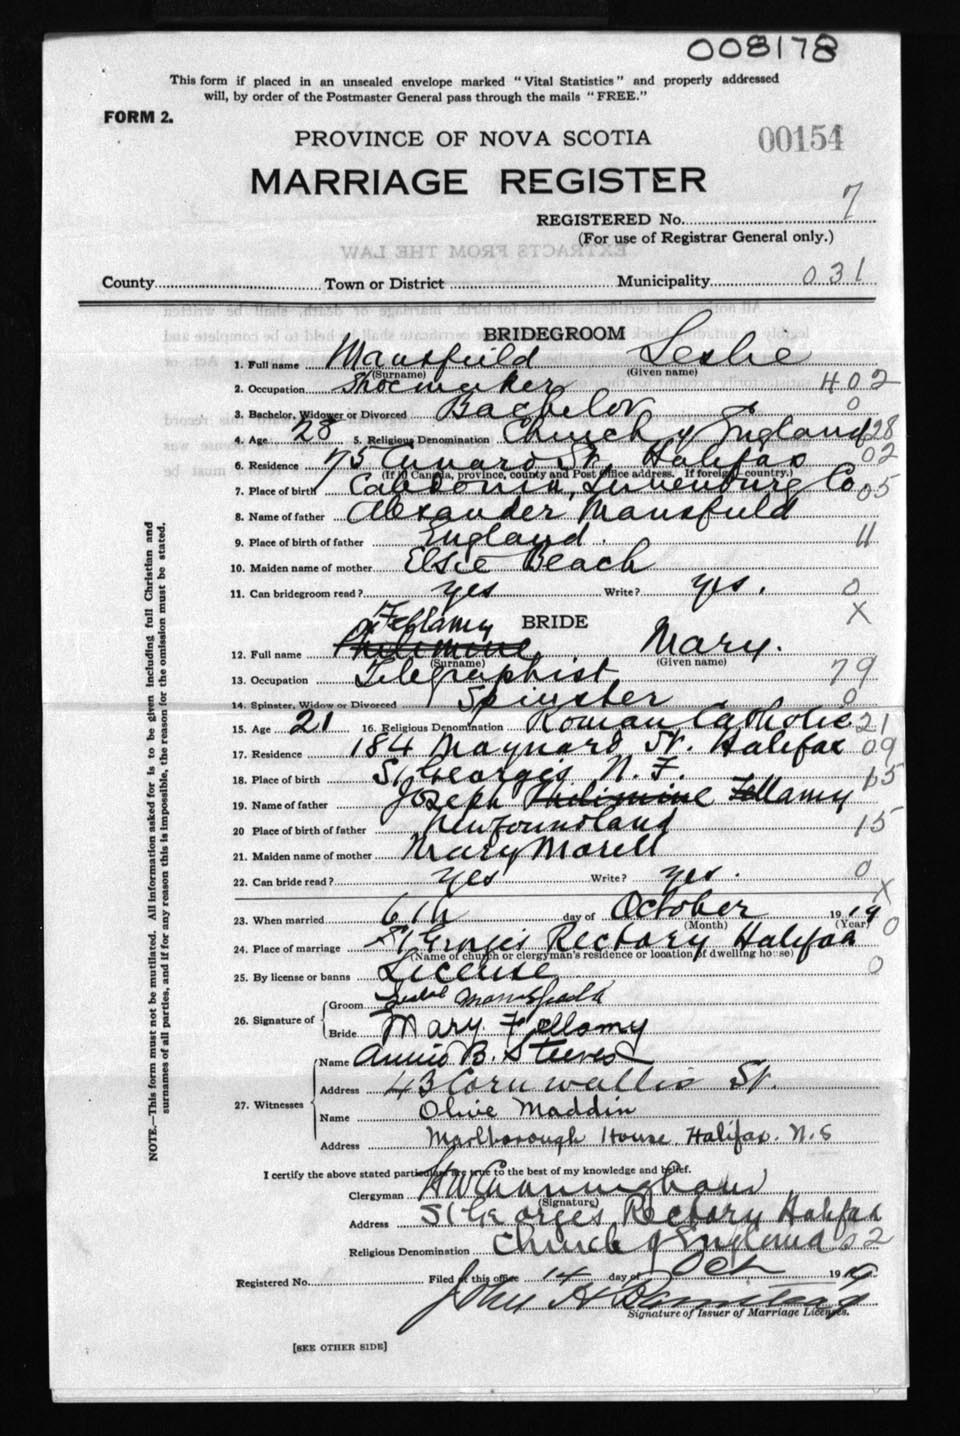 008178
This form if placed in an unsealed envelope marked "Vital Statistics" and properly addressed
will, by order of the Postmaster General pass through the mails "FREE."
FORM 2.
PROVINCE OF NOVA SCOTIA
00154
MARRIAGE REGISTER
REGISTERED No. 7
(For use of Registrar General only.)
EXTRACTS FROM THE LAW
County Town or District Municipality 031
BRIDEGROOM
1. Full name Mansfield Leslie
(Surname) (Given name)
2. Occupation Shoemaker 402
3. Bachelor, Widower or Divorced Bachelor 0
4. Age 28 5. Religious Denomination Church of England 28
6. Residence 75 Cunard St. Halifax 02
(If in Canada, province, county and Post Office address. If foreign country.)
7. Place of birth Caledonia, Lunenburg Co 05
8. Name of father Alexander Mansfield
9. Place of birth of father England. 11
10. Maiden name of mother Elsie Beach
11. Can bridegroom read? yes Write? yes. 0
X
Fellamy
BRIDE
12. Full name Philimine Mary.
(Surname) (Given name)
13. Occupation Telegraphist 79
14. Spinster, Widow or Divorced Spinster 0
15. Age 21 16. Religious Denomination Roman Catholic 21
17. Residence 184 Maynard St. Halifax 09
18. Place of birth St Georges N. F. 15
19. Name of father Joseph Philimine Fellamy
20 Place of birth of father Newfoundland 15
21. Maiden name of mother Mary Morell
22. Can bride read? yes Write? yes. 0
X
23. When married 6th day of October 1919
(Month) (Year) 0
24. Place of marriage St Georges Rectory Halifax
(Name of church or clergyman's residence or location of dwelling house)
25. By license or banns License 0
26. Signature of
Groom Leslie Mansfield
Bride Mary Fellamy
27. Witnesses
Name Annie B. Steeves
Address 43 Cornwallis St.
Name Olive Maddin
Address Marlborough House. Halifax. N.S
I certify the above stated particulars are true to the best of my knowledge and belief.
Clergyman H W Cunningham
(Signature)
Address St Georges Rectory Halifax
Religious Denomination Church of England 02
Registered No. Filed at this office 14 day of Oct 1919
John H
Signature of Issuer of Marriage Licenses.
[SEE OTHER SIDE]
NOTE.—This form must not be mutilated. All information asked for is to be given including full Christian and
surnames of all parties, and if for any reason this is impossible, the reason for the omission must be stated.